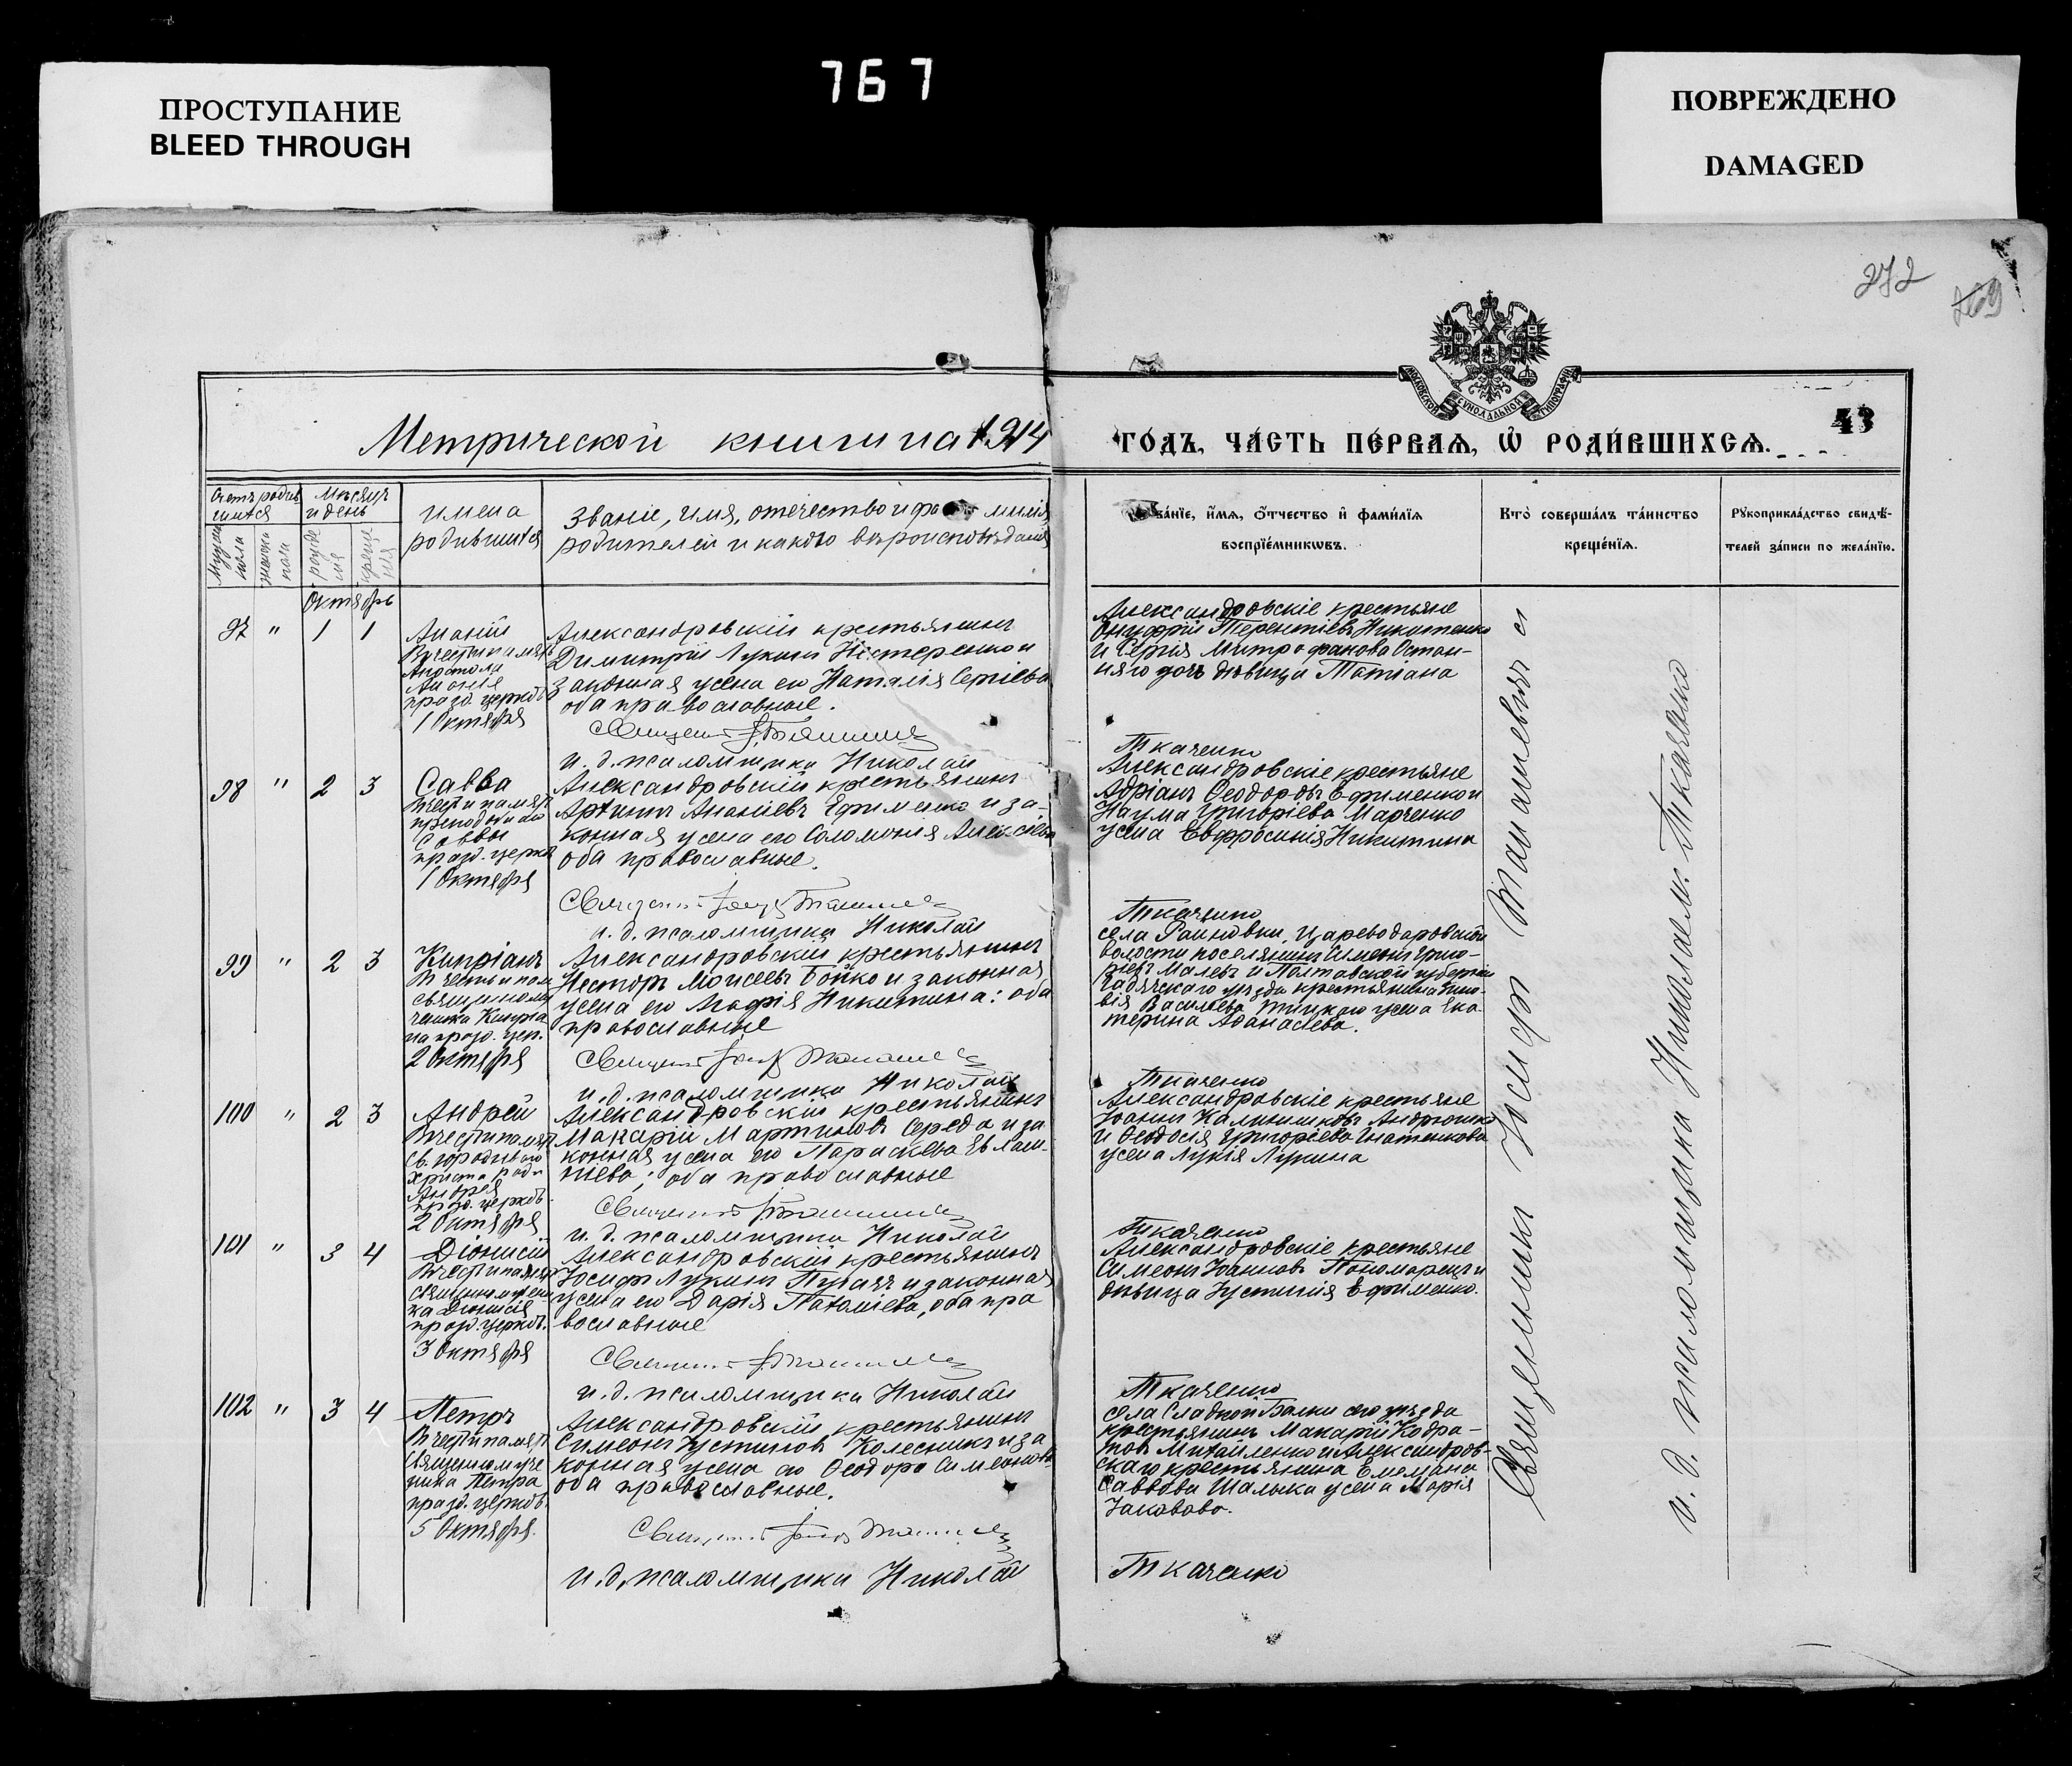 ПРОСТУПАНИЕ
BLEED THROUGH
767
ПОВРЕЖДЕНО
DAMAGED
272
269
МОСКОВСКОЙ СѴНОДАЛЬНОЙ ТИПОГРАФІИ
43
Метрической книги на 1914
ГОДЪ, ЧАСТЬ ПЕРВАЯ, Ѡ РОДИВШИХСЯ.
Счетъ родив
шихся
Мужеска
пола
женска
пола
Мѣсяцъ
и день
рожде
нія
креще
нія
имена
родившихся
Званіе, имя, отечество и фамилія
родителей и какого вѣроисповѣданія
Званїе, имѧ, отчество и фамилїѧ
воспрїемниковъ.
Кто совершалъ таинство
крещенїѧ.
Рукоприкладство свидѣ-
телей записи по желанїю.
Октябрь
97 " 1 1
Ананій
В честь и памят
Апостола
Ананія
празд. церков
1 Октября
Александровскій крестьянинъ
Димитрій Лукинъ Нестеренко и
законная жена его Наталія Сергіева
оба православные.
Священ. І. Томашев
и. д. псаломщика Николай
Александровскіе крестьяне
Онуфрій Терентіевъ Никитенко
и Сергія Митрофанова Остап-
няго дочь дѣвица Татіана
Ткаченко
98 " 2 3
Савва
В честь и памят
преподобнаго
Саввы
празд. церкв
1 Октября
Александровскій крестьянинъ
Ананіевъ Ефименко и за-
конная жена его Соломонія Алексѣева
оба православные.
Священ.
и. д. псаломщика Николай
Александровскіе крестьяне
Адріанъ Ѳеодоровъ Ефименко и
Наума Григоріева Марченко
жена Евфросинія Никитина
Ткаченко
99 " 2 3
Кипріанъ
В честь и пам
священному
ченика Кипріа
на празд. цер.
2 Октября
Александровскій крестьянинъ
Несторъ Моисеевъ Бойко и законная
жена его Агафія Никитина: оба
православные
Священ.
и. д. псаломщика Николай
села Райновки, Цареводаровской
волости поселянинъ Симеонъ Григо-
рьевъ Малевъ и Полтавской губерніи
Гадячскаго уѣзда крестьянина
Васильева жена Ека
терина Аѳанасіева.
Ткаченко
100 " 2 3
Андрей
В честь и памят
св. юродиваго
Христа ради
Андрея
празд. церков.
2 Октября
Александровскій крестьянинъ
Макарій Мартиновъ Середа и за
конная жена его Параскева Евлам-
піева; оба православные
Священ.
и. д. псаломщика Николай
Александровскіе крестьяне
Іоаннъ Калиниковъ Андрюшко
и Ѳеодосія Григоріева Гнатенкова
жена Лукія Лукина
Ткаченко
101 " 3 4
Діонисій
В честь и памят
священномучени
ка Діонисія
празд. церков.
3 Октября
Александровскій крестьянинъ
Іосифъ Лукинъ Пугачъ и законная
жена его Дарія Потапіева, оба пра
вославные
Священ.
и. д. псаломщика Николай
Александровскіе крестьяне
Симеонъ Іоанновъ Пономарецъ и
дѣвица Іустинія Ефименко.
Ткаченко
102 " 3 4
Петръ
В честь и памят
священномуче
ника Петра
празд. церков.
5 Октября.
Александровскій крестьянинъ
Симеонъ Іустиновъ Колесникъ и за
конная жена его Ѳеодора Симеонова
оба православные.
Священ.
и. д. псаломщика Николай
села Сладкой Балки сего уѣзда
крестьянинъ Макарій Кодра-
товъ Михайленко и Александров-
скаго крестьянина Емеліана
Саввова Шалыка жена Марія
Іаковова.
Ткаченко
Священникъ Іосифъ Томашевичъ и
и. д. псаломщика Николаемъ Ткаченко